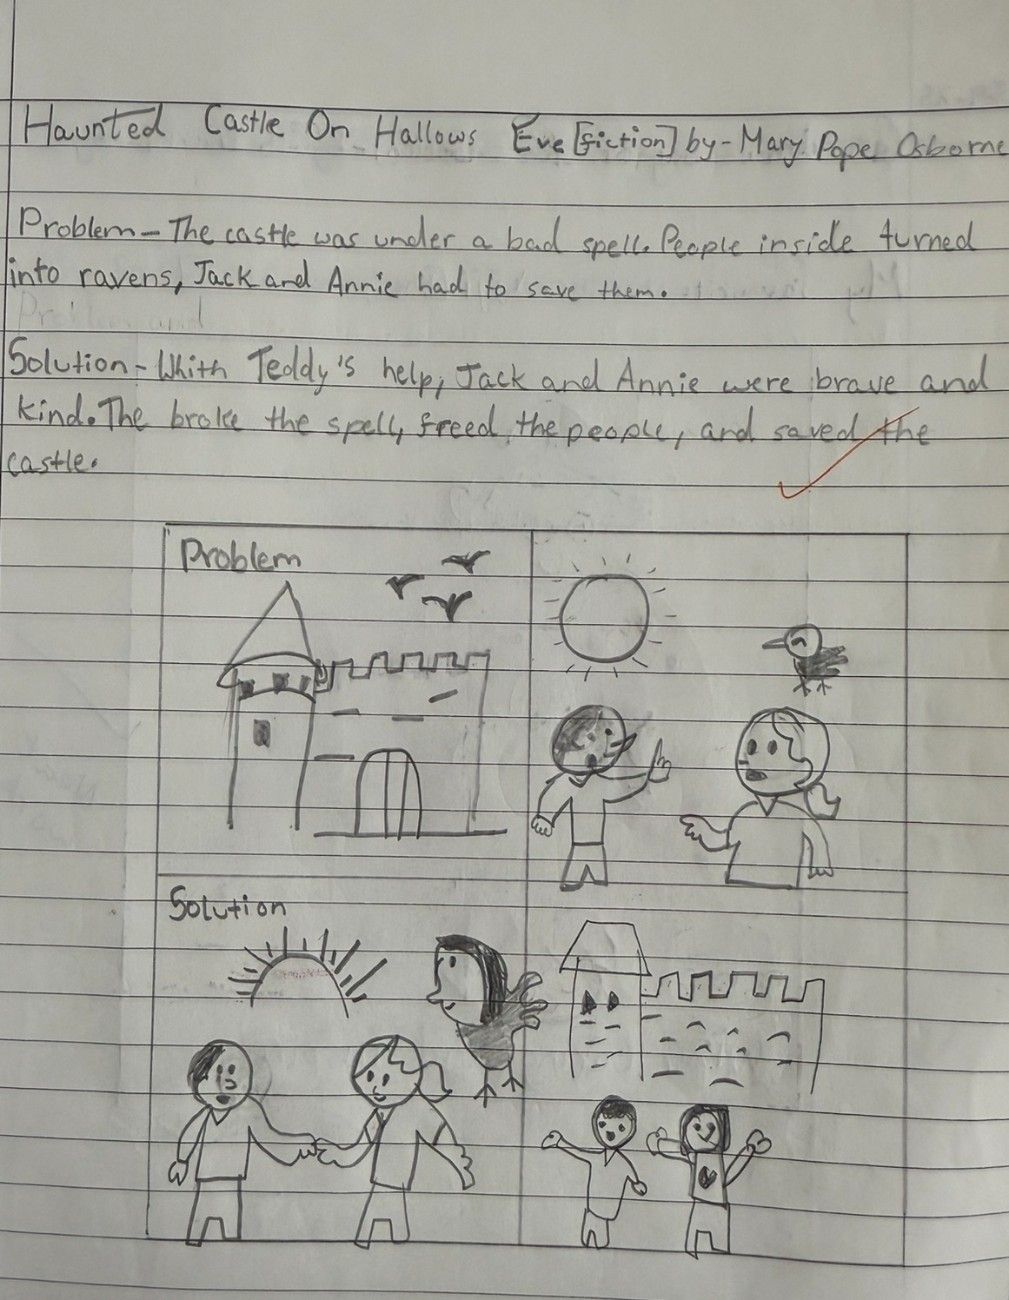 Haunted Castle On Hallows Eve [fiction] by - Mary Pope Osborne
Problem - The castle was under a bad spell. People inside turned
into ravens, Jack and Annie had to save them.
Solution - Whith Teddy's help, Jack and Annie were brave and
kind. The broke the spell, freed the people, and saved the
castle.
Problem
Solution